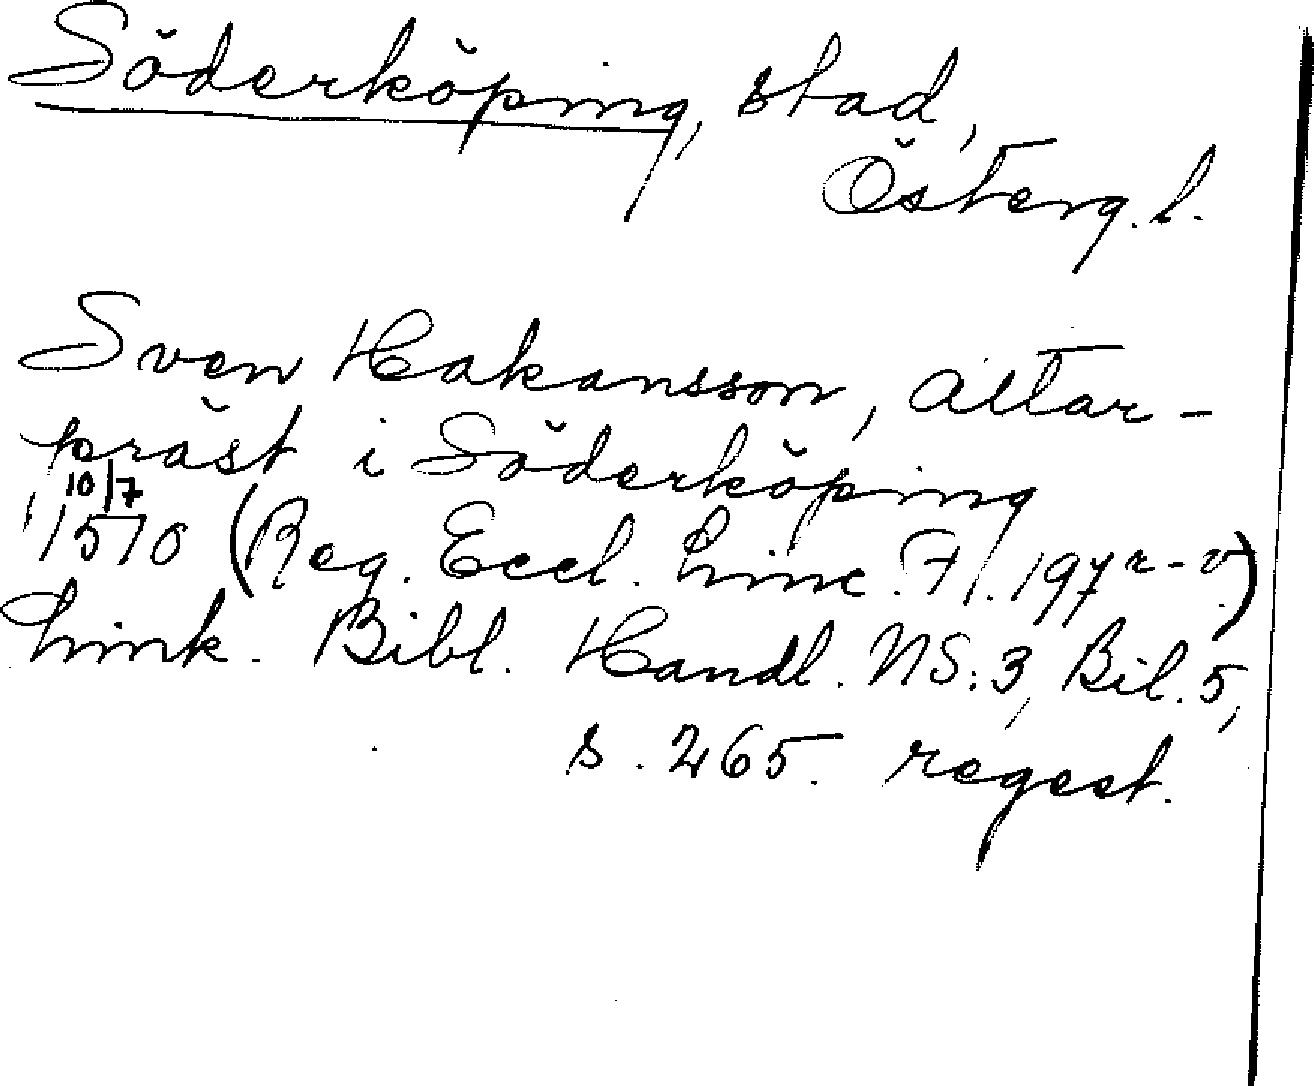 Söderköping, stad,
Österg. l.
Sven Hakansson, altar-
präst i Söderköping
10/7
1510 (Reg. Eccl. Linc. Fl. 197 r-v.)
Link. Bibl. Handl. NS: 3, Bil. 5,
s. 265. regest.